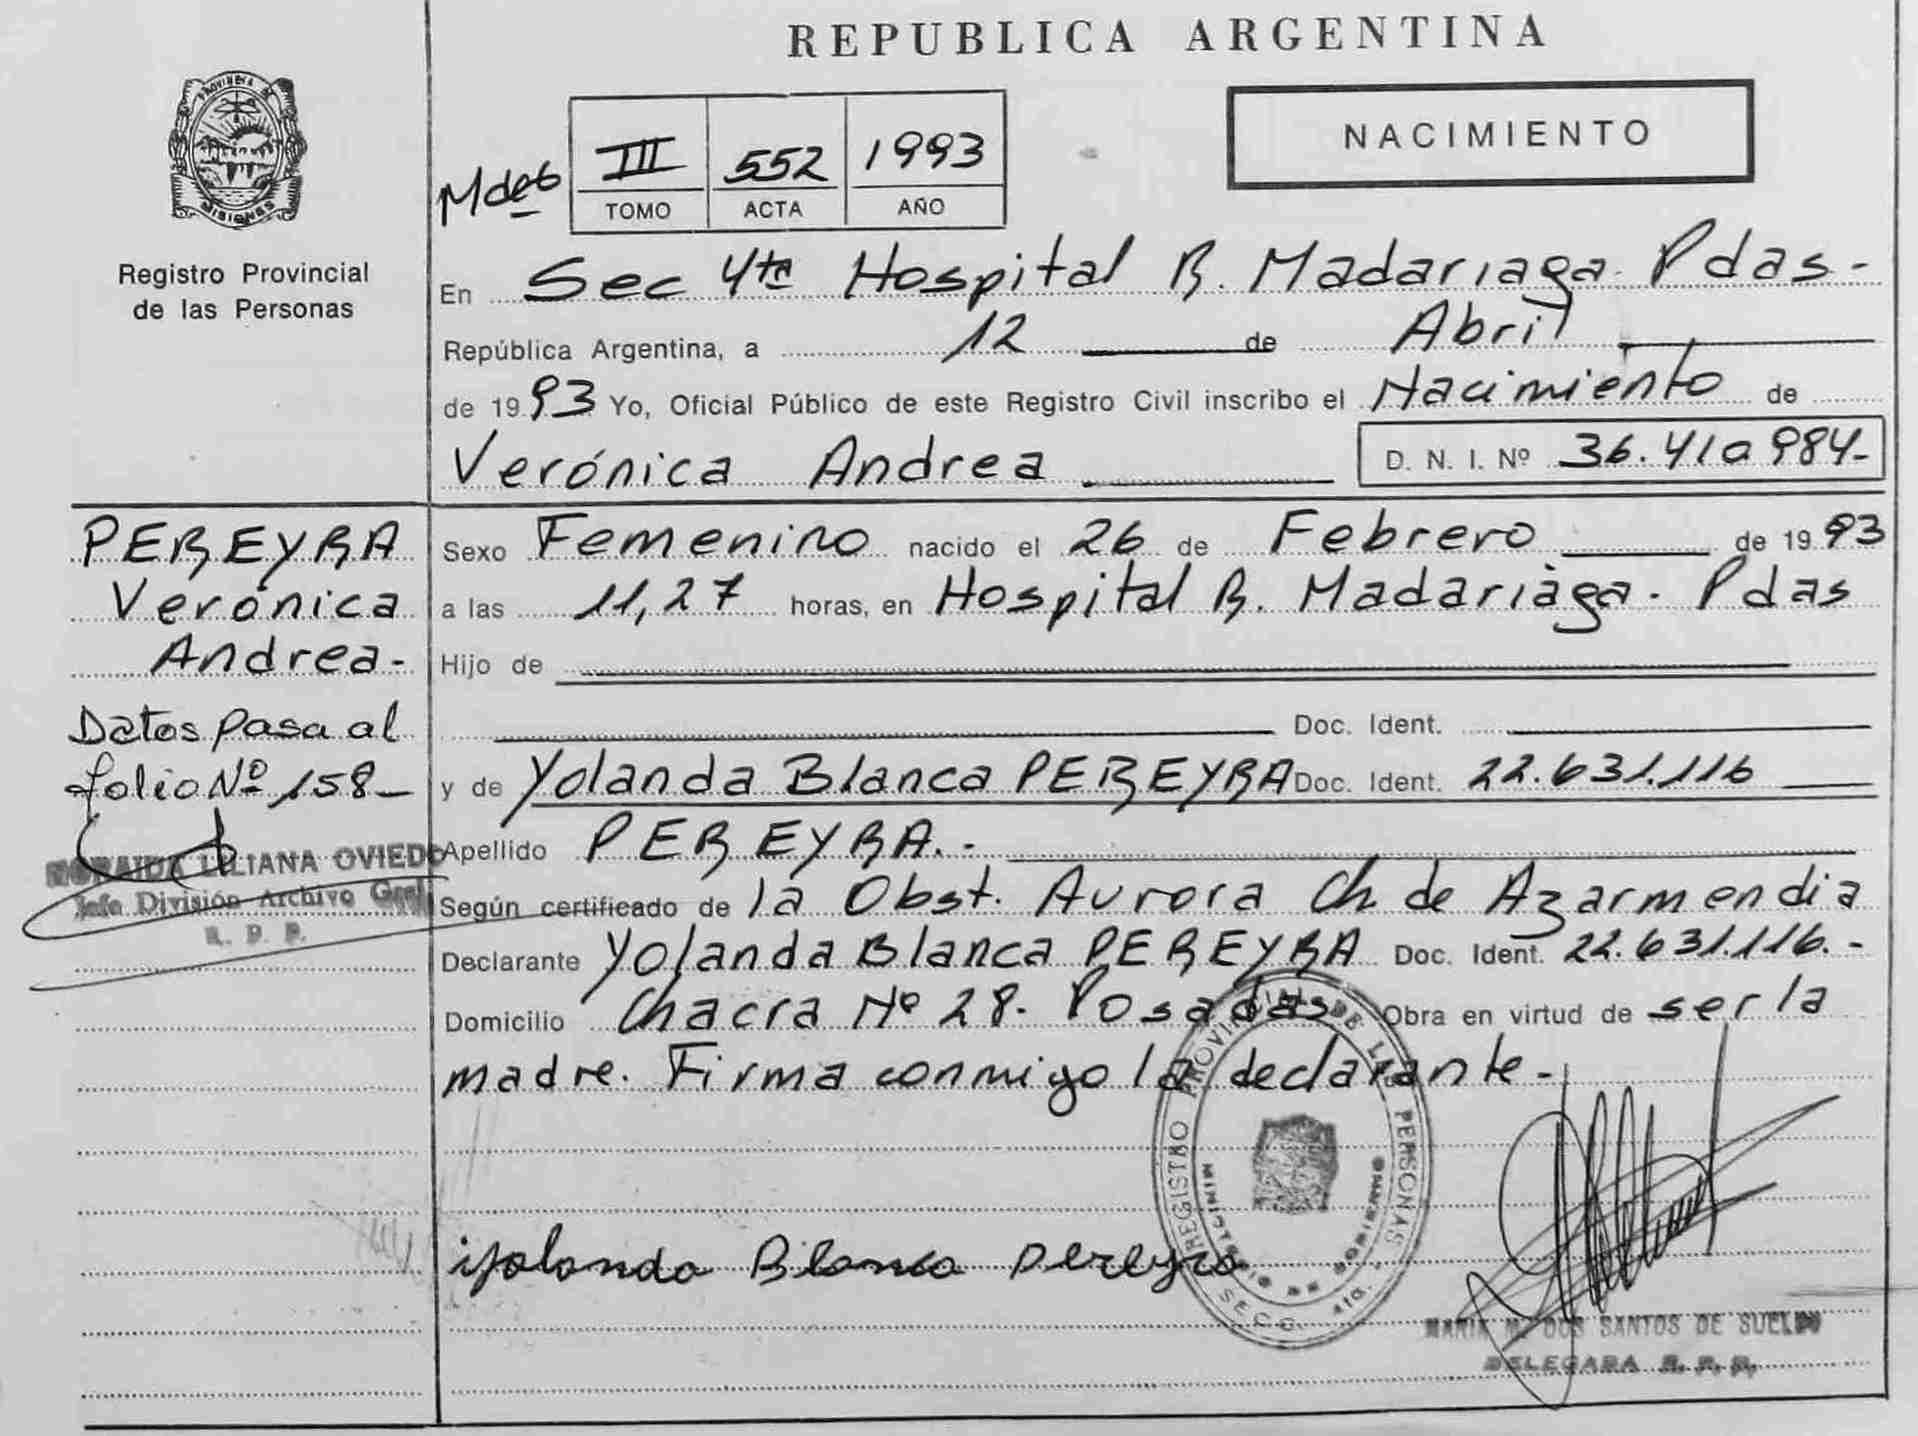 REPUBLICA ARGENTINA
PROVINCIA DE
MISIONES
Registro Provincial
de las Personas
III 552 1993
TOMO ACTA AÑO
NACIMIENTO
En Sec 4ta Hospital R. Madariaga Pdas-
República Argentina, a 12 de Abril
de 1993 Yo, Oficial Público de este Registro Civil inscribo el Nacimiento de
Verónica Andrea D. N. I. Nº 36.410984-
PEREYRA
Verónica
Andrea-
Datos pasa al
folio Nº 158-
NORAIDA LILIANA OVIEDO
Jefe División Archivo Gral
R. P. P.
Sexo Femenino nacido el 26 de Febrero de 1993
a las 11,27 horas, en Hospital R. Madariàga. Pdas
Hijo de
Doc. Ident.
y de Yolanda Blanca PEREYRA Doc. Ident. 22.631.116
Apellido PEREYRA.-
Según certificado de la Obst. Aurora Ch. de Azarmendia
Declarante Yolanda Blanca PEREYRA Doc. Ident. 22.631.116.-
Domicilio Chacra Nº 28. Posadas Obra en virtud de ser la
madre. Firma conmigo la declarante-
Yolanda Blanca Pereyra
REGISTRO PROVINCIAL DE LAS PERSONAS
MINISTERIO DE GOBIERNO
SECC. 4ta.
MARIA M. DOS SANTOS DE SUELDO
DELEGADA R. P. P.